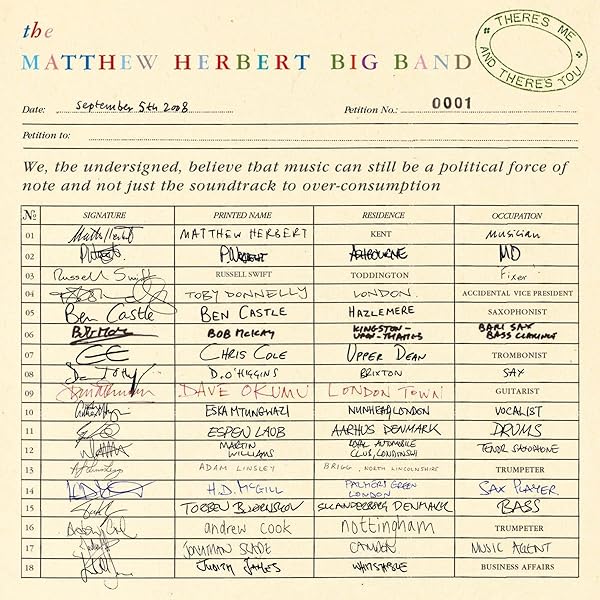 the
MATTHEW HERBERT BIG BAND
THERE'S ME AND THERE'S YOU
Date: September 5th 2008 Petition No.: 0001
Petition to:
We, the undersigned, believe that music can still be a political force of
note and not just the soundtrack to over-consumption
No SIGNATURE PRINTED NAME RESIDENCE OCCUPATION
01 MATTHEW HERBERT KENT Musician
02 P.Wright ASHBOURNE MD
03 Russell Swift RUSSELL SWIFT TODDINGTON Fixer
04 TOBY DONNELLY LONDON. ACCIDENTAL VICE PRESIDENT
05 Ben Castle BEN CASTLE HAZLEMERE SAXOPHONIST
06 BOB McKAY KINGSTON-UPON-THAMES BARI SAX BASS CLARINET
07 CHRIS COLE UPPER DEAN TROMBONIST
08 D.O'HIGGINS BRIXTON SAX
09 DAVE OKUMU LONDON TOWN GUITARIST
10 ESKA MTUNGWAZI NUNHEAD, LONDON VOCALIST
11 ESPEN LAUB AARHUS DENMARK DRUMS
12 MARTIN WILLIAMS ROYAL AUTOMOBILE CLUB, TENOR SAXOPHONE
13 ADAM LINSLEY BRIGG, NORTH LINCOLNSHIRE TRUMPETER
14 H.D. McGILL PALMERS GREEN LONDON SAX PLAYER
15 TORBEN BJØRNSKOV SKANDERBORG DENMARK BASS
16 andrew cook nottingham TRUMPETER
17 JONATHAN SLADE CAMDEN MUSIC AGENT
18 JUDITH JAMES WHITSTABLE BUSINESS AFFAIRS